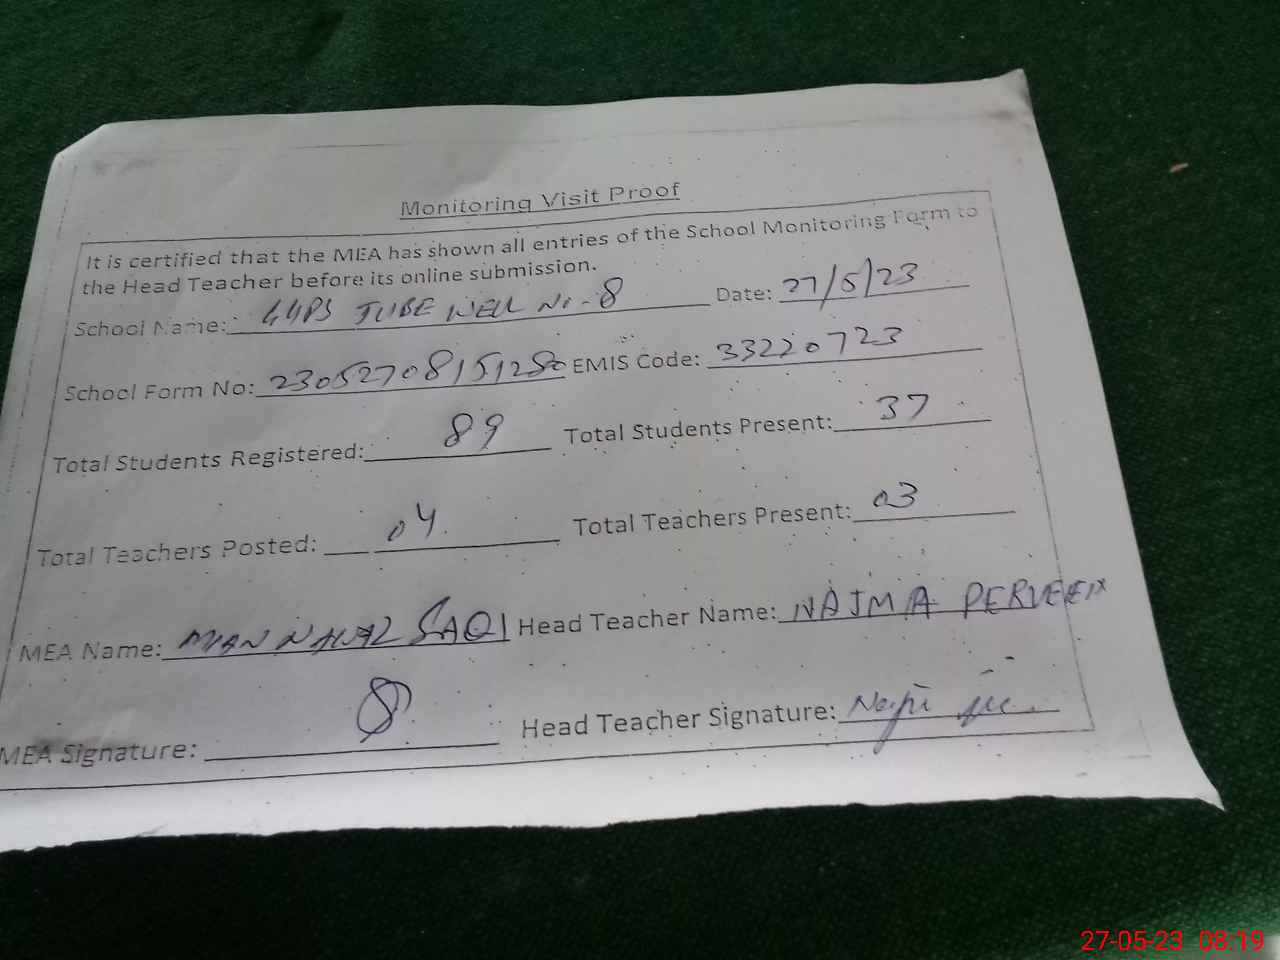 Monitoring Visit Proof
It is certified that the MEA has shown all entries of the School Monitoring Form to
the Head Teacher before its online submission.
School Name: GGPS TUBE WELL No-8 Date: 27/5/23
School Form No: 23052708151280 EMIS Code: 33220723
Total Students Registered: 89 Total Students Present: 37
Total Teachers Posted: 04 Total Teachers Present: 03
MEA Name: MIAN NAWAZ SAQI Head Teacher Name: NAJMA PERVEEN
MEA Signature: Head Teacher Signature:
27-05-23 08:19